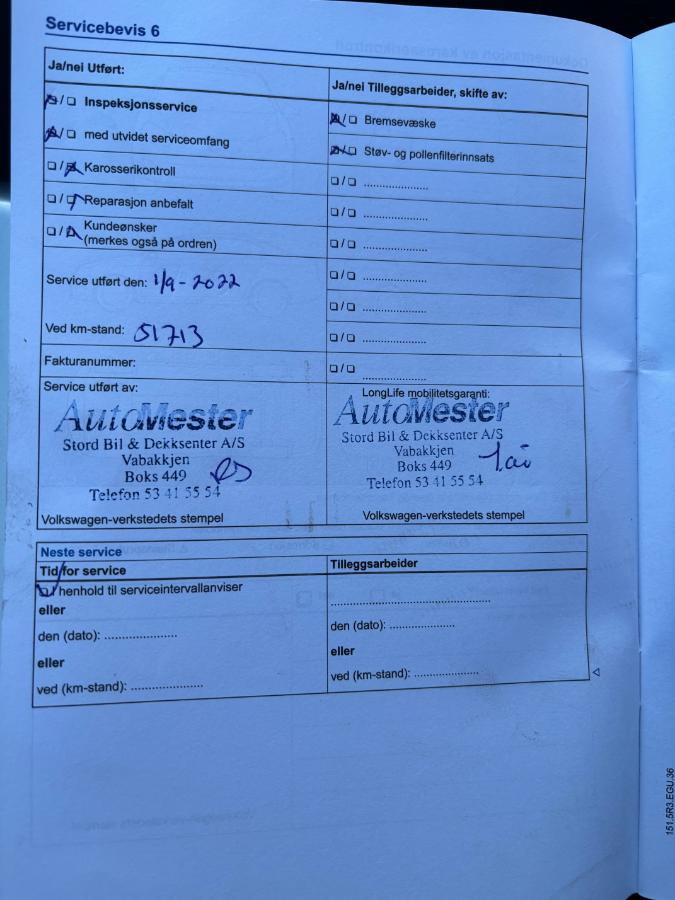 Servicebevis 6
Ja/nei Utført:
Inspeksjonsservice
med utvidet serviceomfang
Karosserikontroll
Reparasjon anbefalt
Kundeønsker
(merkes også på ordren)
Service utført den: 1/9-2022
Ved km-stand: 51713
Fakturanummer:
Ja/nei Tilleggsarbeider, skifte av:
Bremsevæske
Støv- og pollenfilterinnsats
Service utført av:
AutoMester
Stord Bil & Dekksenter A/S
Vabakkjen
Boks 449
Telefon 53 41 55 54
Volkswagen-verkstedets stempel
LongLife mobilitetsgaranti:
AutoMester
Stord Bil & Dekksenter A/S
Vabakkjen
Boks 449
Telefon 53 41 55 54
Volkswagen-verkstedets stempel
Neste service
Tid for service
I henhold til serviceintervallanviser
eller
den (dato): ..................
eller
ved (km-stand): ..................
Tilleggsarbeider
den (dato): ................
eller
ved (km-stand): ................
151.5R3.EGU.36